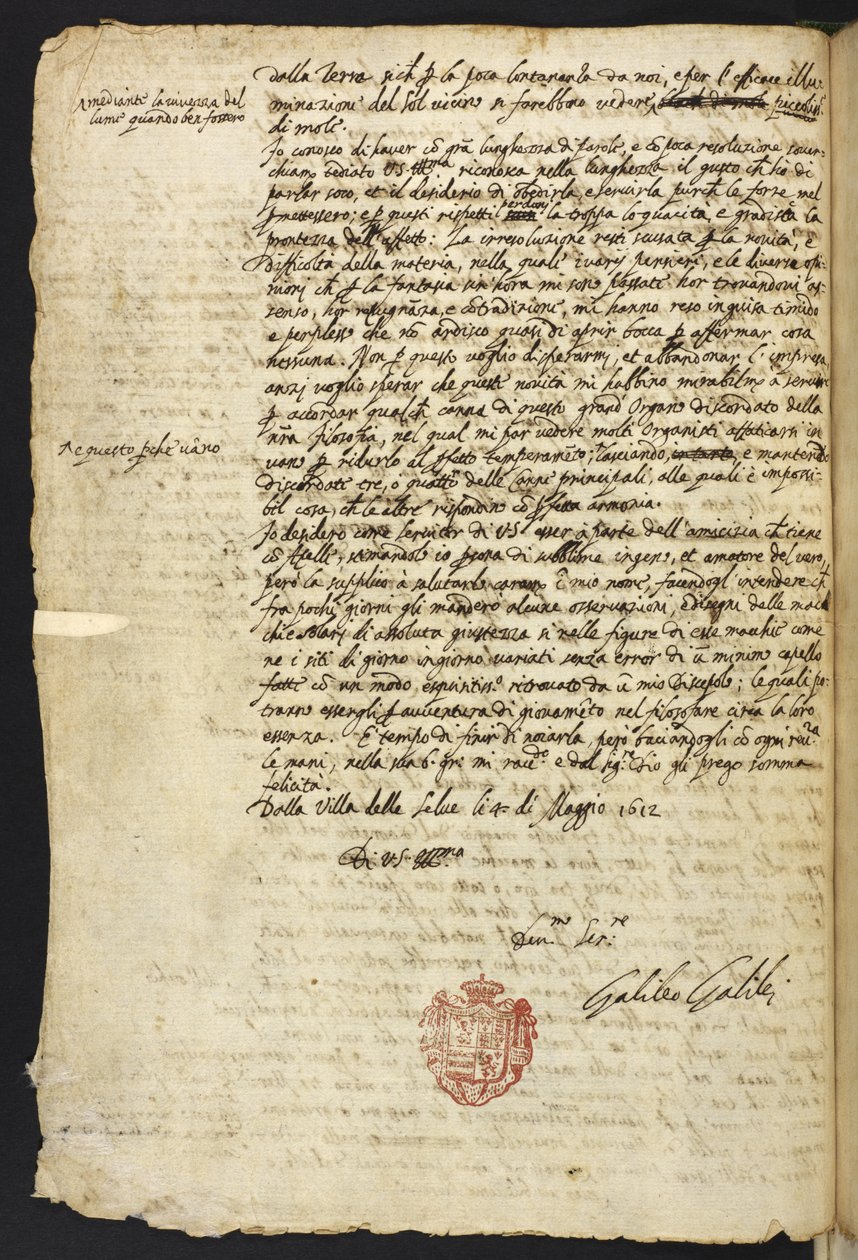 dalla Terra sich ꝑ la poca lontananza da noi, e per l'efficace illu-
^mediante la vivezza del
lume quando ben fossero
minazione del Sol vicino si farebbono vedere^ piccoliss.i
di mole.
Io conosco di haver cō grā lunghezza di parole, e cō poca resoluzione sover-
chiamte tediato V.S. Ill.ma riconosca nella lunghezza il gusto ch hò di
parlar seco, et il desiderio di obedirla, e servirla purch le forze mel
ꝑmettessero; e ꝑ questi rispetti perdoni la troppa loquacità, e gradisca la
prontezza dell'affetto: La irresoluzione resti scusata ꝑ la novità, e
difficoltà della materia, nella quale i varij pensieri, e le diverse opi-
nioni ch ꝑ la fantasia sin hora mi son passate hor trovandovi as-
senso, hor repugnāza, e cōtradizione, mi hanno reso inguisa timido
e perplesso che nō ardisco quasi di aprir bocca ꝑ affermar cosa
nessuna. Non ꝑ questo voglio disperarmi, et abbandonar l'impresa,
anzi voglio sperar che queste novità mi habbino mirabilmte à servire
ꝑ accordar qualch canna di questo grand'Organo discordato della
nra filosofia, nel qual mi par vedere molti Organisti affaticarsi in
^e questo ꝑchè vāno
vano ꝑ ridurlo al ꝑfetto temperamēto; ^lasciando, in tanto, e mantenēdo
discordate tre, o quattro delle Canne principali, alle quali è impossi-
bil cosa, ch le altre rispondino cō ꝑfetta armonia.
Io desidero come servitor di V.S. esser à parte dell'amicizia ch tiene
cō Apelle, stimandolo io ꝑsona di sublime ingegno, et amatore del vero,
però la supplico à salutarlo caramte ī mio nome, facendogl'intendere ch
fra pochi giorni gli manderò alcune osservazioni, e disegni delle mac-
chie solari di assoluta giustezza si nelle figure di esse macchie come
ne i siti di giorno ingiorno variati senza error di ū minimo capello
fatte cō un modo esquisitiss.o ritrovato da ū mio Discepolo; le quali po-
tranno essergli ꝑ avventura di giovamēto nel filosofare circa la loro
essenza. È tempo di finir di noiarla, però baciandogli cō ogni rev.za
le mani, nella sua b. gr. mi racc.do e dal sig.re Dio gli prego somma
felicità.
Dalla Villa delle Selve li 4 di Maggio 1612
Di V.S. Ill.ma
Dev.mo Ser.re
Galileo Galilei